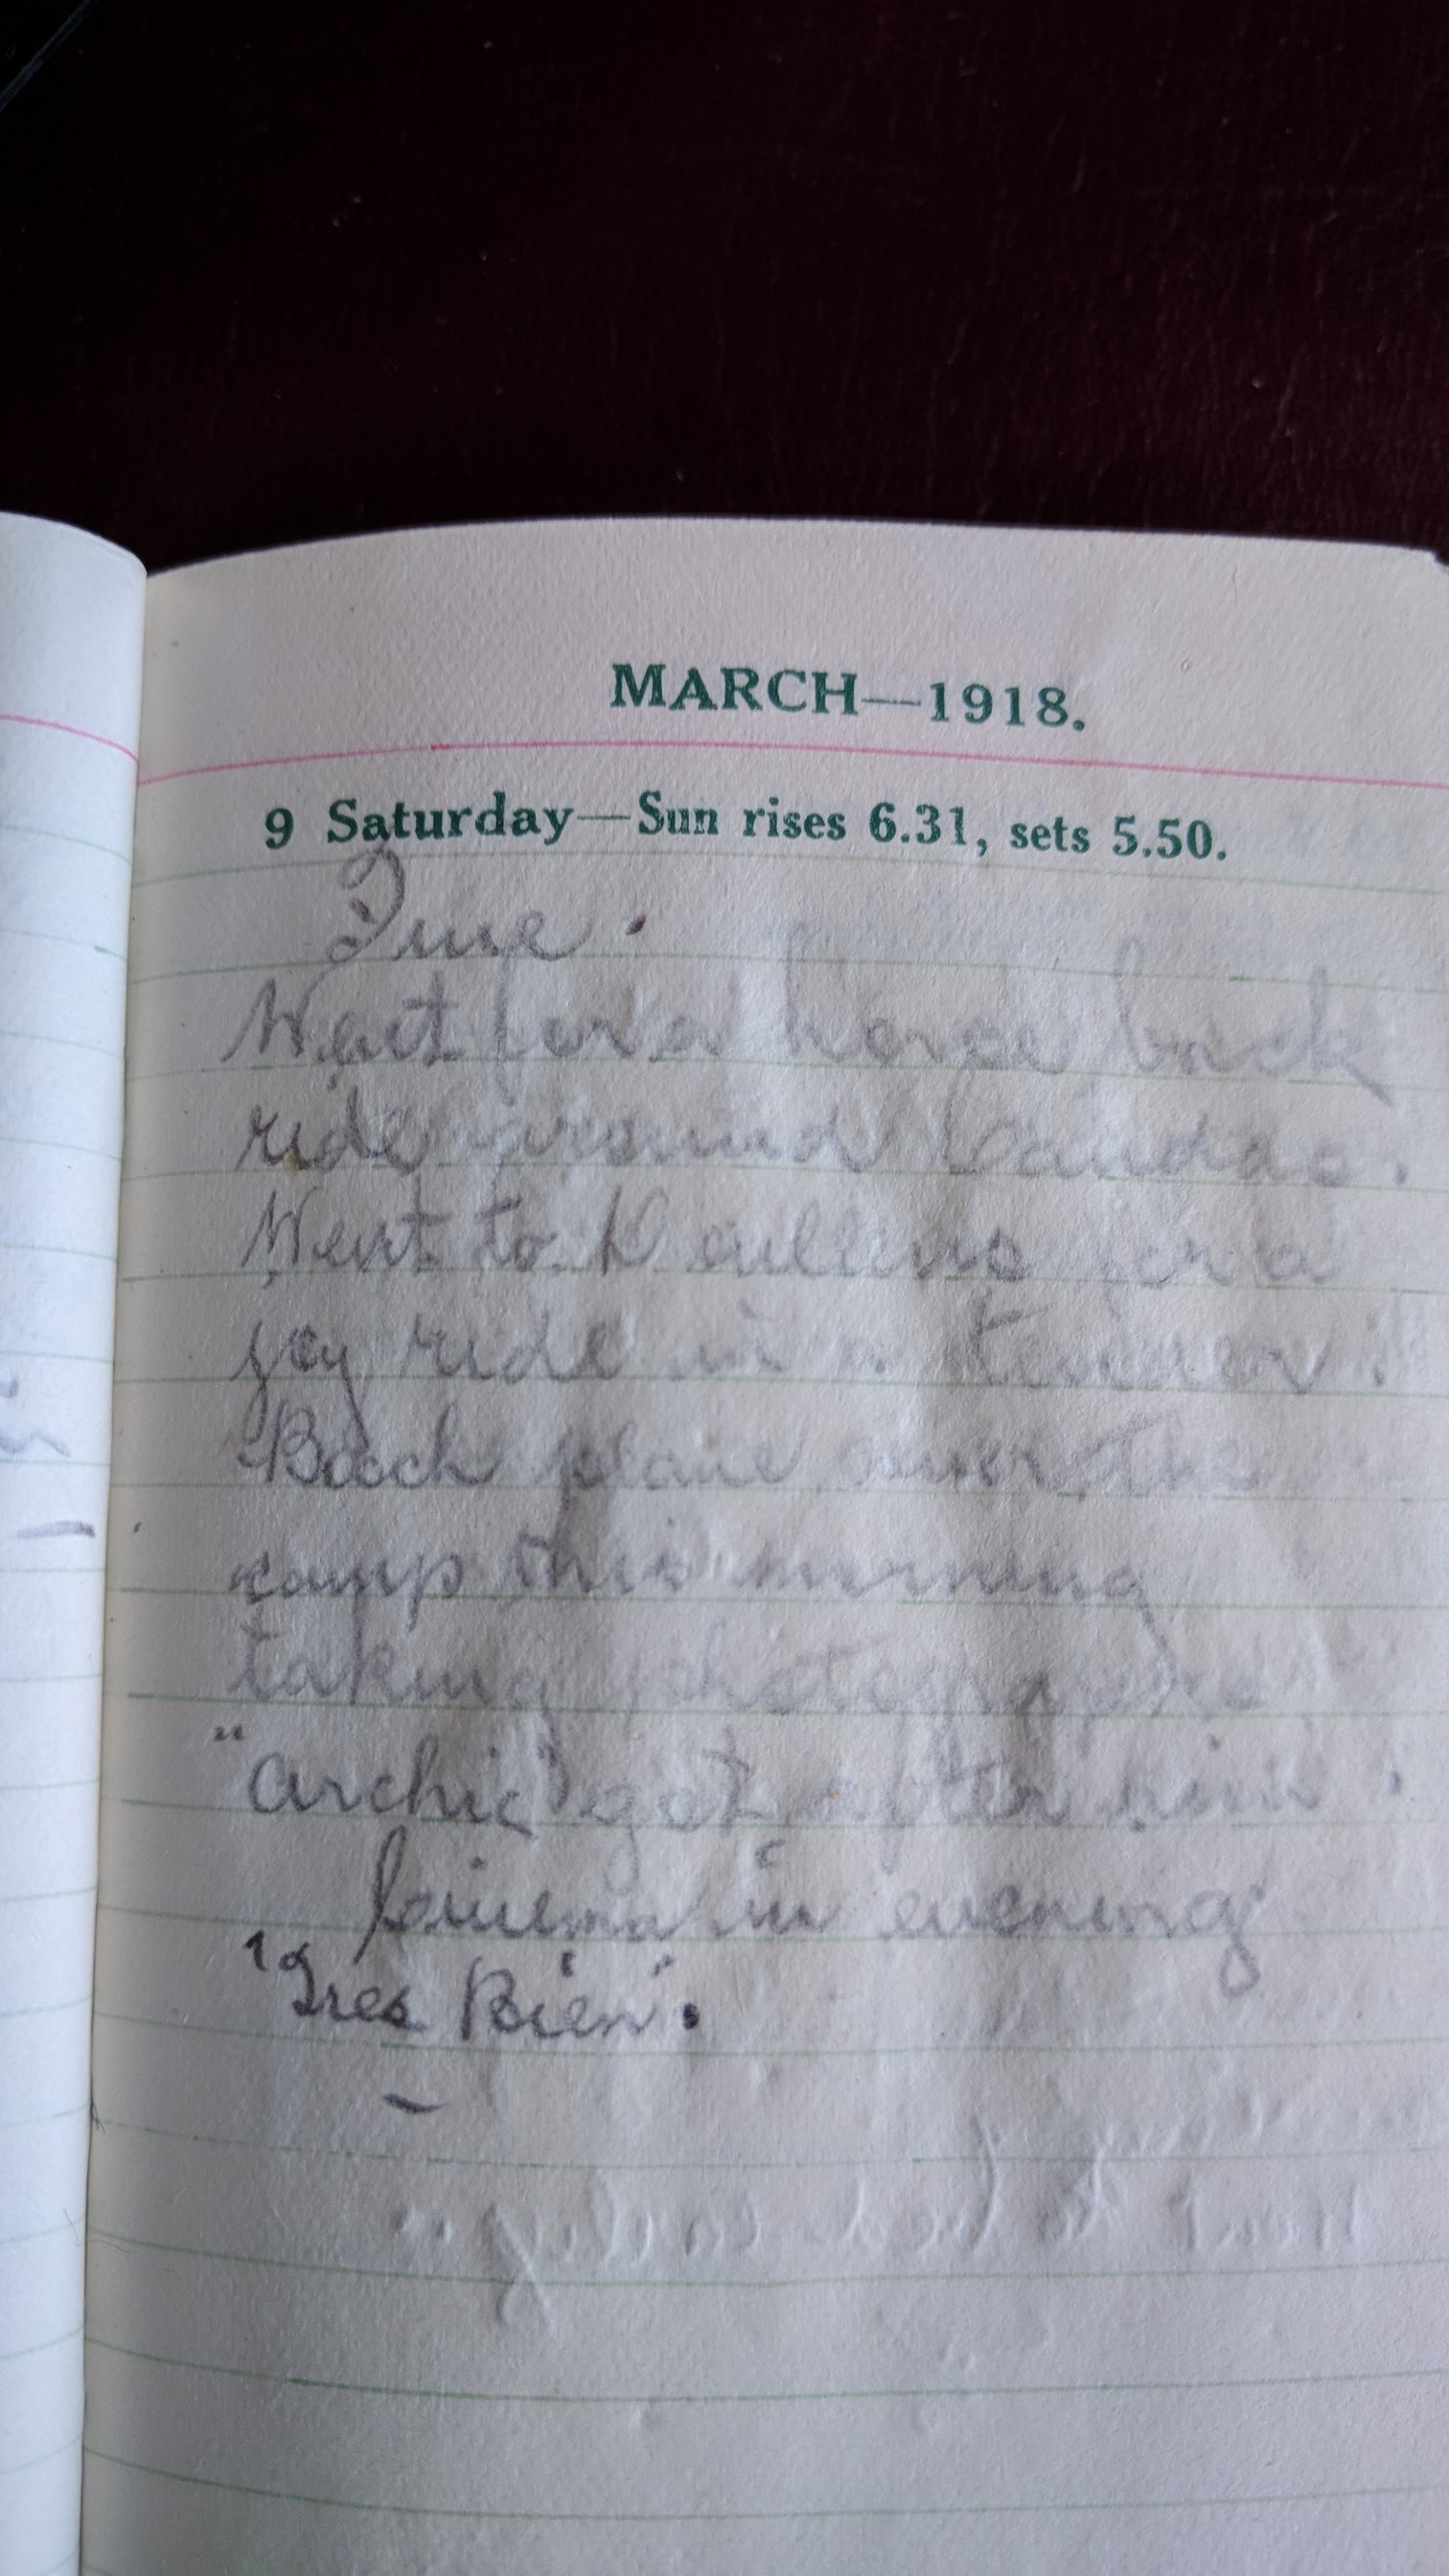 MARCH—1918.
9 Saturday—Sun rises 6.31, sets 5.50.
Fine.
Went for a horse back
ride around Candas.
Went to Doullens for a
joy ride in a tender.
Boch plane over the
camp this morning
taking photographs
"Archie" got after him.
Cinema in evening
'Tres Bien'.